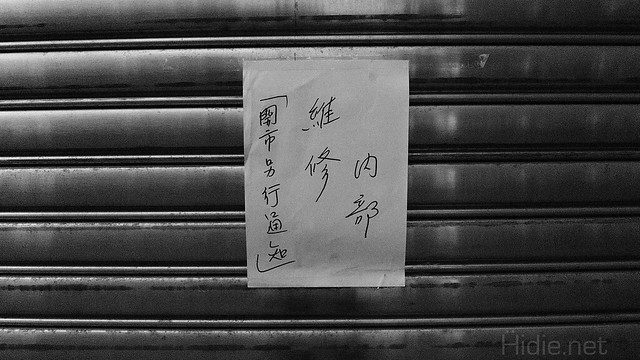 內部
維修
「開市另行通知」
Hidie.net